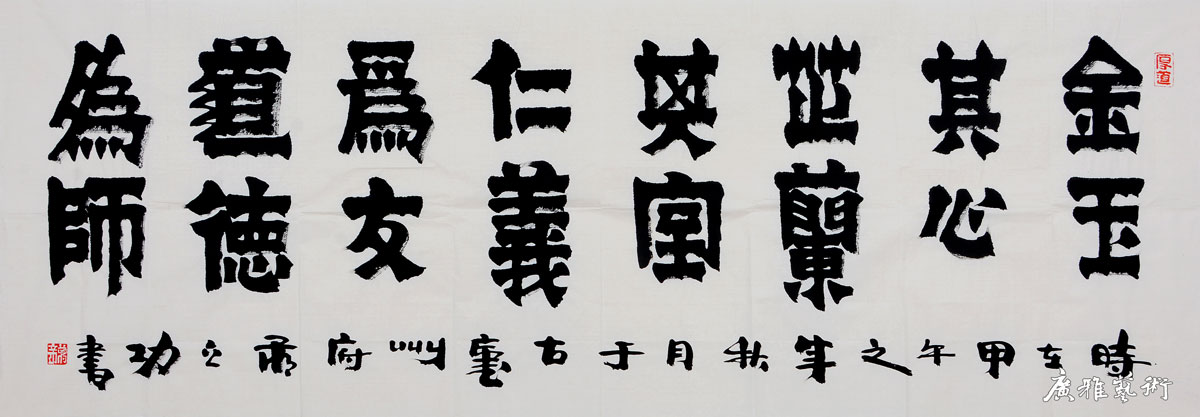 金玉
其心
芝蘭
其室
仁義
爲友
道德
為師
時在甲午之年秋月于古夔州府立功書
厚道
廣雅藝術